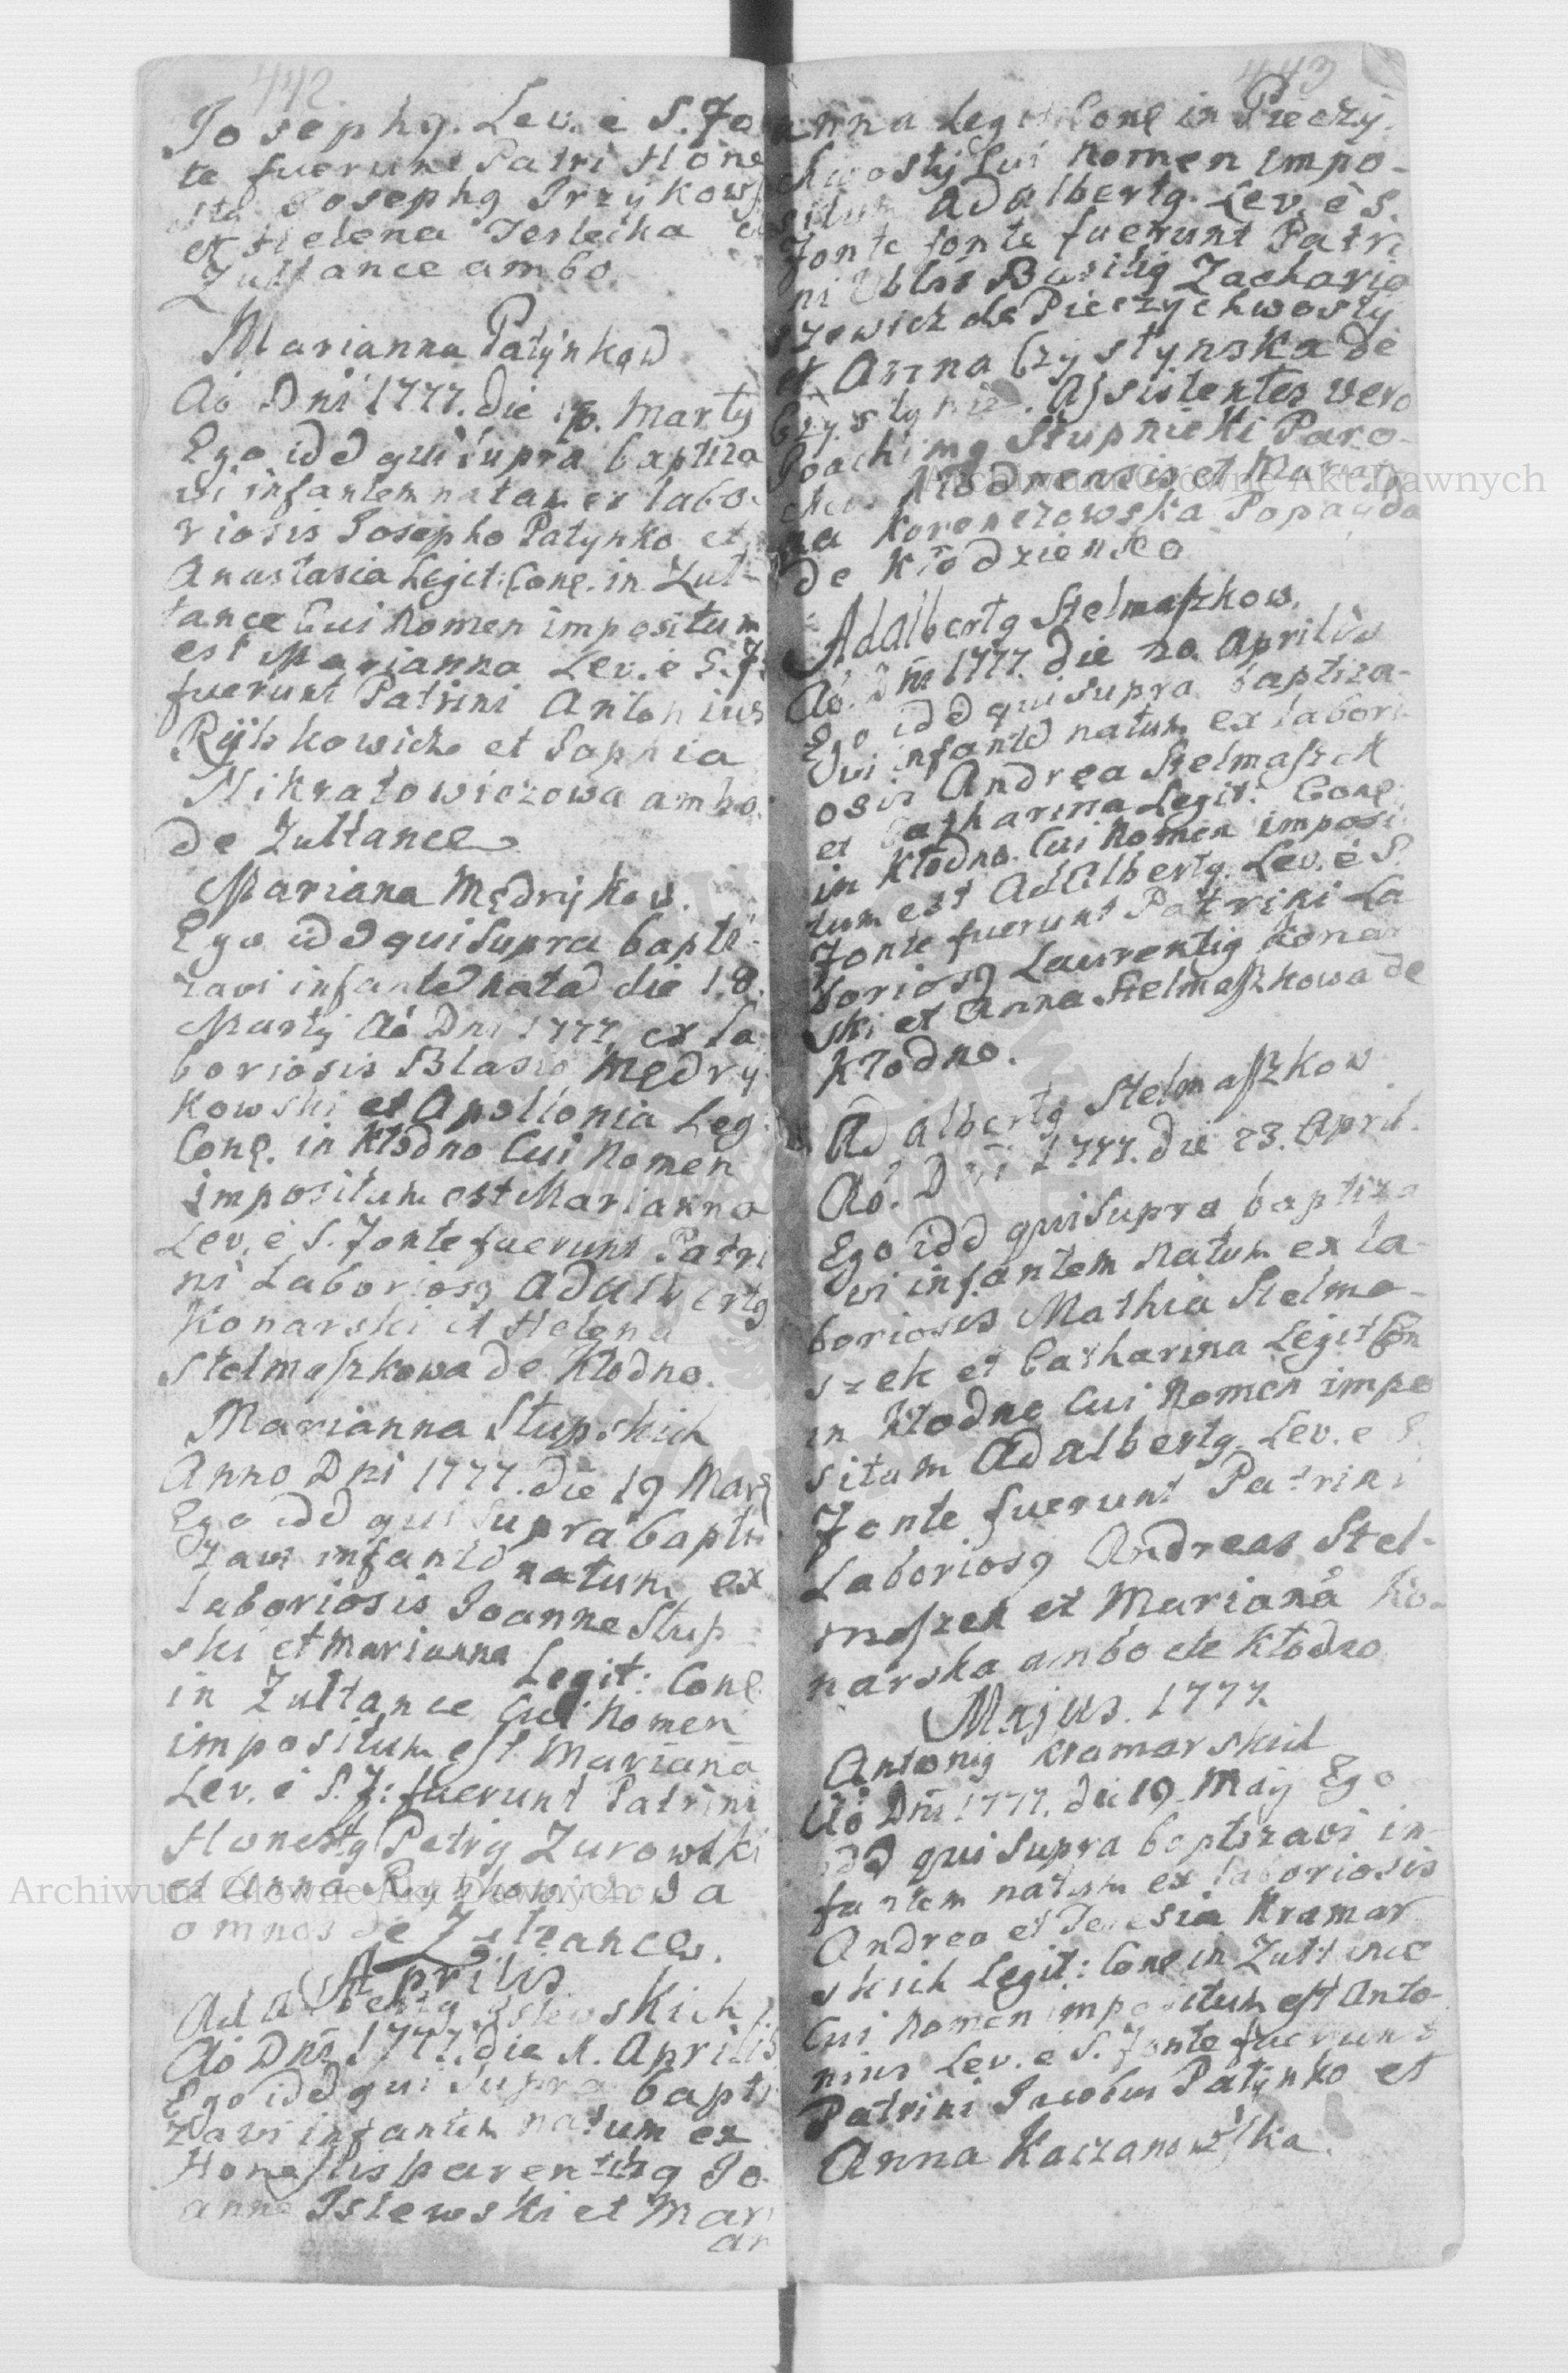 442.
Josephg. Lev. e S. Fo
te fuerunt Patri Hone
stg Josephg Trzykows
et Helena Terlecka
Zultance ambo.
Marianna Patynkow
Aó Dni 1777. die 16. Martÿ
Ego idd qui supra baptiza
vi infantem natam ex labo-
riosis Josepho Patynko et
Anastasia Legit: Conl. in Zul-
tance Cui Nomen impositum
est Marianna Lev. e S. F:
fuerunt Patrini Antonius
et Sophia
Nikratowiczowa ambo
de Zultance
Mariana Mędrykow.
Ego idd qui supra bapti-
zavi infantē natā die 18.
Martij Aó Dni 1777. ex la
boriosis Blasio Mędry
kowski et Apollonia Leg.
Conl. in Kłodno Cui Nomen
impositum est Marianna
Lev. e S. Fonte fuerunt Patri
ni Laboriosg Adalbertg
Konarski et Helena
Stelmaszkowa de Kłodno.
Marianna Stupskich
Anno Dni 1777. die 19 Mart
Ego idd qui supra bapti
zavi infantē natum ex
laboriosis Joanne Stup
ski et Marianna Legit: Conl
in Zultance Cui Nomen
impositum est Mariana
Lev. e S. F: fuerunt Patrini
Honestg Petrg Zurowski
et Anna
omnes de Zultance.
Aprilis
Adalbertg Islewskich
Aó Dni 1777. die Aprilis
Ego idd qui supra bapti
zavi infantem natum ex
Honestis parentibg Jo
anne Islewski et Mari
an
443
anna Legit Conl in Pieczy
chwosty Cui Nomen impo-
situm Adalbertg. Lev. e S.
Fonte fonte fuerunt Patri
ni Basilig Zacharia
szewicz de Pieczychwosty
et Anna Czystynska de
Czystynie. Assistentes vero
Joachimg Stupnicki Paro-
chus Kłodnensis et Marian
na Korenczowska Popadia
de Kłodzienko
Adalbertg Stelmaszkow.
Aó. Dni 1777. die 20. Aprilis
Ego idd qui supra baptiza-
vi infantē natum ex labori
osis Andrea Stelmaszek
et Catharina Legit: Conl.
in Kłodno. Cui Nomen imposi
tum est Adalbertg. Lev. e S.
Fonte fuerunt Patrini La
boriosg Laurentig Konar
ski et Anna Stelmaszkowa de
Kłodno.
Adalbertg Stelmaszkow
Aó. Dni 1777. die 23. April.
Ego idd qui supra baptiza
vi infantem natum ex la-
boriosis Mathia Stelma-
szek et Catharina Legit Con
in Kłodno Cui Nomen impo
situm Adalbertg. Lev. e S
Fonte fuerunt Patrini
Laboriosg Andreas Stel-
maszek et Mariana Ko-
narska ambo de Kłodno
Majus. 1777.
Antonig Kramarskich
Aó Dni 1777. die 19. Maij Ego
idd qui supra baptizavi in-
fantem natum ex laboriosis
Andrea et Teresia Kramar
skich Legit: Conl in Zultance
Cui Nomen impositum est Anto-
nius Lev. e S. Fonte fuerunt
Patrini Jacobus Patynko et
Anna Kaczanowska.
Archiwum Główne Akt Dawnych
Archiwum Główne Akt Dawnych